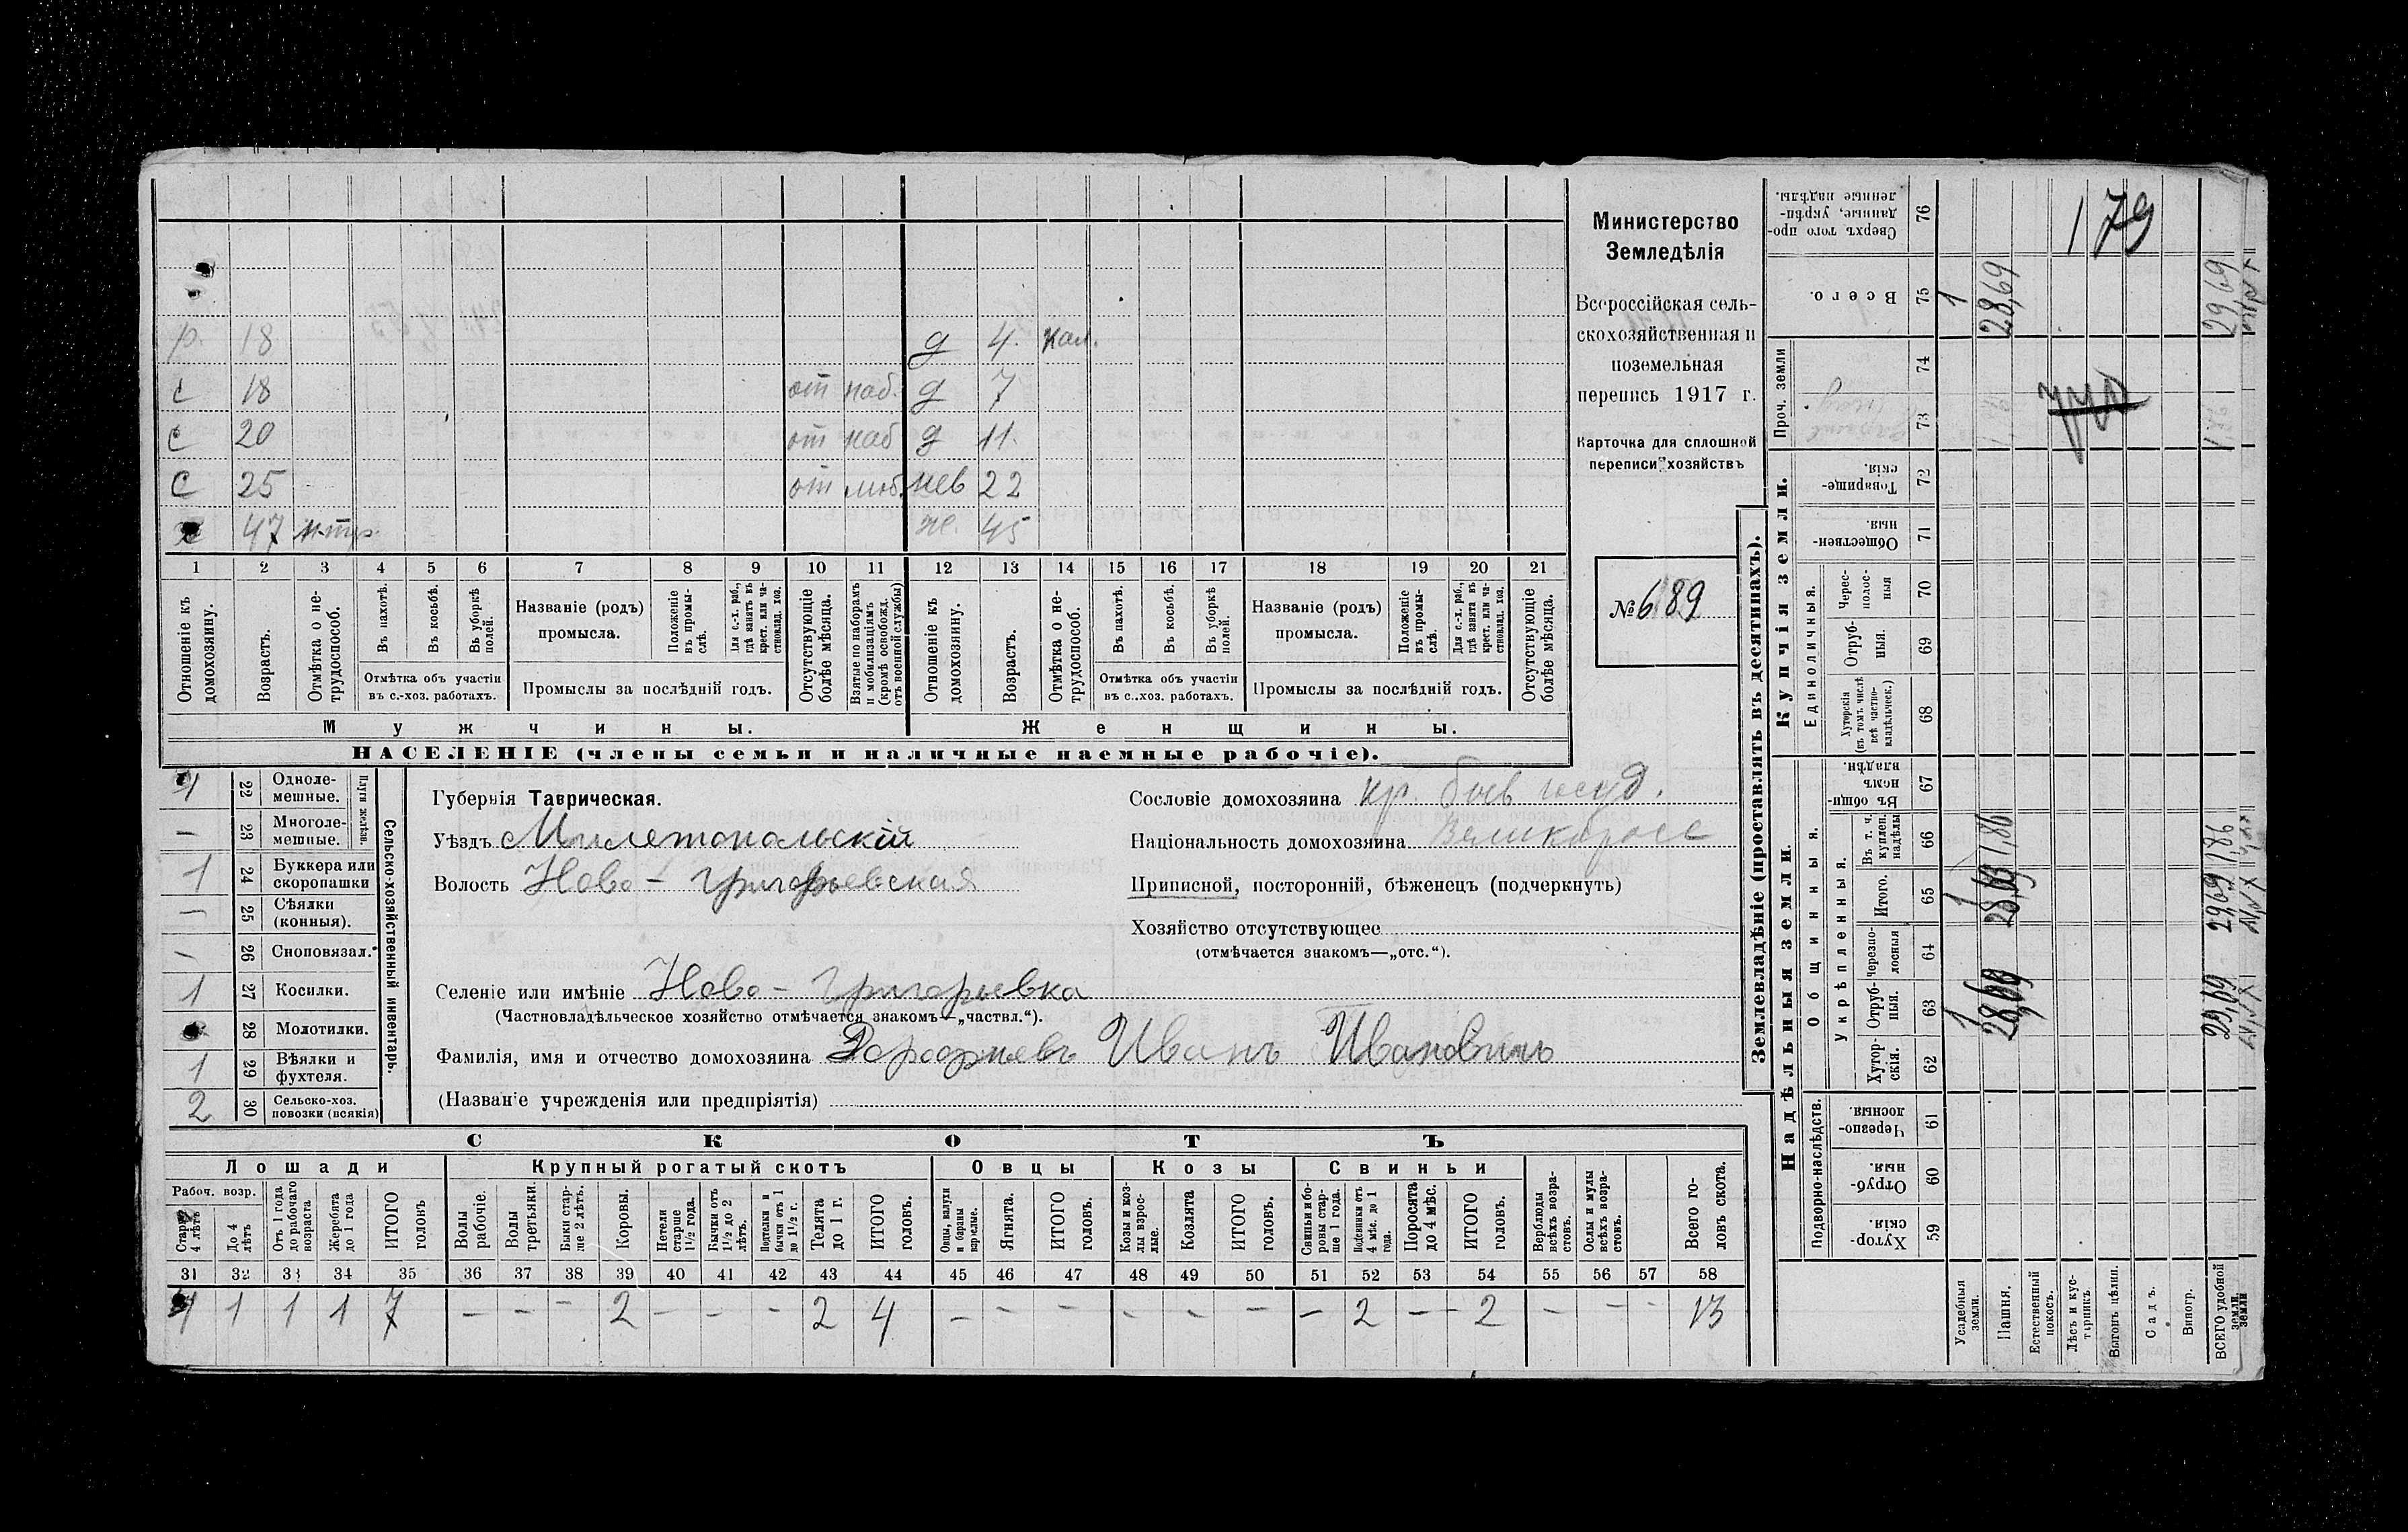 Министерство
Земледѣлія
Всероссійская сель-
скохозяйственная и
поземельная
перепись 1917 г.
Карточка для сплошной
переписи хозяйствъ
№ 689
р. 18 д 4. кал.
с 18 от наб. д 7
с 20 от наб д 11.
с 25 от моб. нев 22
х 47 ж. 45
1 2 3 4 5 6 7 8 9 10 11 12 13 14 15 16 17 18 19 20 21
Отношеніе къ домохозяину.
Возрастъ.
Отмѣтка о не-трудоспособ.
Въ пахотѣ.
Въ косьбѣ.
Въ уборкѣ полей.
Отмѣтка объ участіи въ с.-хоз. работахъ.
Названіе (родъ) промысла.
Положеніе въ промы-слѣ.
Для с.-х. раб., гдѣ занятъ въ крест. или ча-стновлад. хоз.
Промыслы за послѣдній годъ.
Отсутствующіе болѣе мѣсяца.
Взятые по наборамъ и мобилизаціямъ (кромѣ освобожд. отъ военной службы)
Отношеніе къ домохозяину.
Возрастъ.
Отмѣтка о не-трудоспособ.
Въ пахотѣ.
Въ косьбѣ.
Въ уборкѣ полей.
Отмѣтка объ участіи въ с.-хоз. работахъ.
Названіе (родъ) промысла.
Положеніе въ промы-слѣ.
Для с.-х. раб., гдѣ занята въ крест. или ча-стновлад. хоз.
Промыслы за послѣдній годъ.
Отсутствующіе болѣе мѣсяца.
Мужчины. Женщины.
НАСЕЛЕНІЕ (члены семьи и наличные наемные рабочіе).
22 Однолемешные.
— 23 Многолемешные.
Плуги желѣзн.
1 24 Буккера или скоропашки
— 25 Сѣялки (конныя).
— 26 Сноповязал.
1 27 Косилки.
28 Молотилки.
1 29 Вѣялки и фухтеля.
2 30 Сельско-хоз. повозки (всякія)
Сельско-хозяйственный инвентарь.
Губернія Таврическая.
Уѣздъ Мелетопольскій
Волость Ново-Григорьевская
Селеніе или имѣніе Ново-Григорьевка
(Частновладѣльческое хозяйство отмѣчается знакомъ—„частвл.“).
Фамилія, имя и отчество домохозяина Дорофѣевъ Иванъ Ивановичъ
(Названіе учрежденія или предпріятія)
Сословіе домохозяина кр. быв госуд.
Національность домохозяина Великоросс
Приписной, посторонній, бѣженецъ (подчеркнуть)
Хозяйство отсутствующее
(отмѣчается знакомъ—„отс.“).
СКОТЪ
Лошади Крупный рогатый скотъ Овцы Козы Свиньи
Рабоч. возр.
Старше 4 лѣтъ
До 4 лѣтъ
Отъ 1 года до рабочаго возраста
Жеребята до 1 года
ИТОГО головъ
Волы рабочіе.
Волы третьяки.
Быки старше 2 лѣтъ.
Коровы.
Нетели старше 1 1/2 года.
Бычки отъ 1 1/2 до 2 лѣтъ.
Подтелки и бычки отъ 1 до 1 1/2 г.
Телята до 1 г.
ИТОГО головъ.
Овцы, валухи и бараны взрослые.
Ягнята.
ИТОГО головъ.
Козы и козлы взрослые.
Козлята
ИТОГО головъ.
Свиньи и боровы старше 1 года.
Подсвинки отъ 4 мѣс. до 1 года.
Поросята до 4 мѣс.
ИТОГО головъ.
Верблюды всѣхъ возрастовъ.
Ослы и мулы всѣхъ возрастовъ.
Всего головъ скота.
31 32 33 34 35 36 37 38 39 40 41 42 43 44 45 46 47 48 49 50 51 52 53 54 55 56 57 58
4 1 1 1 7 — — — 2 — — — 2 4 — — — — — — — 2 — 2 — — — 13
Землевладѣніе (проставлять въ десятинахъ).
Надѣльныя земли. Купчія земли. Проч. земли
Подворно-наслѣдств.
Общинныя.
Укрѣпленныя.
Единоличныя.
Хутор-скія. 59
Отруб-ныя. 60
Черезпо-лосныя. 61
Хутор-скія. 62
Отруб-ныя. 63
Черезпо-лосныя 64
Итого. 65
Въ т. ч. куплен. надѣлы 66
Въ общи-номъ владѣн. 67
Хуторскія (въ томъ числѣ всѣ частно-владѣльческ.) 68
Отруб-ныя. 69
Черес-полос-ныя 70
Обществен-ныя. 71
Товарище-скія. 72
73
74
Всего. 75
Сверхъ того про-данные, укрѣп-ленные надѣлы. 76
Усадебныя земли. 1 1 1
Пашня. 28,69 28,69 1,86 28,69
Естественный покосъ.
Лѣсъ и кус-тарникъ.
Выгонъ цѣлин.
Садъ.
Виногр.
ВСЕГО удобной земли. 29,69 29,69 1,86 29,69
179